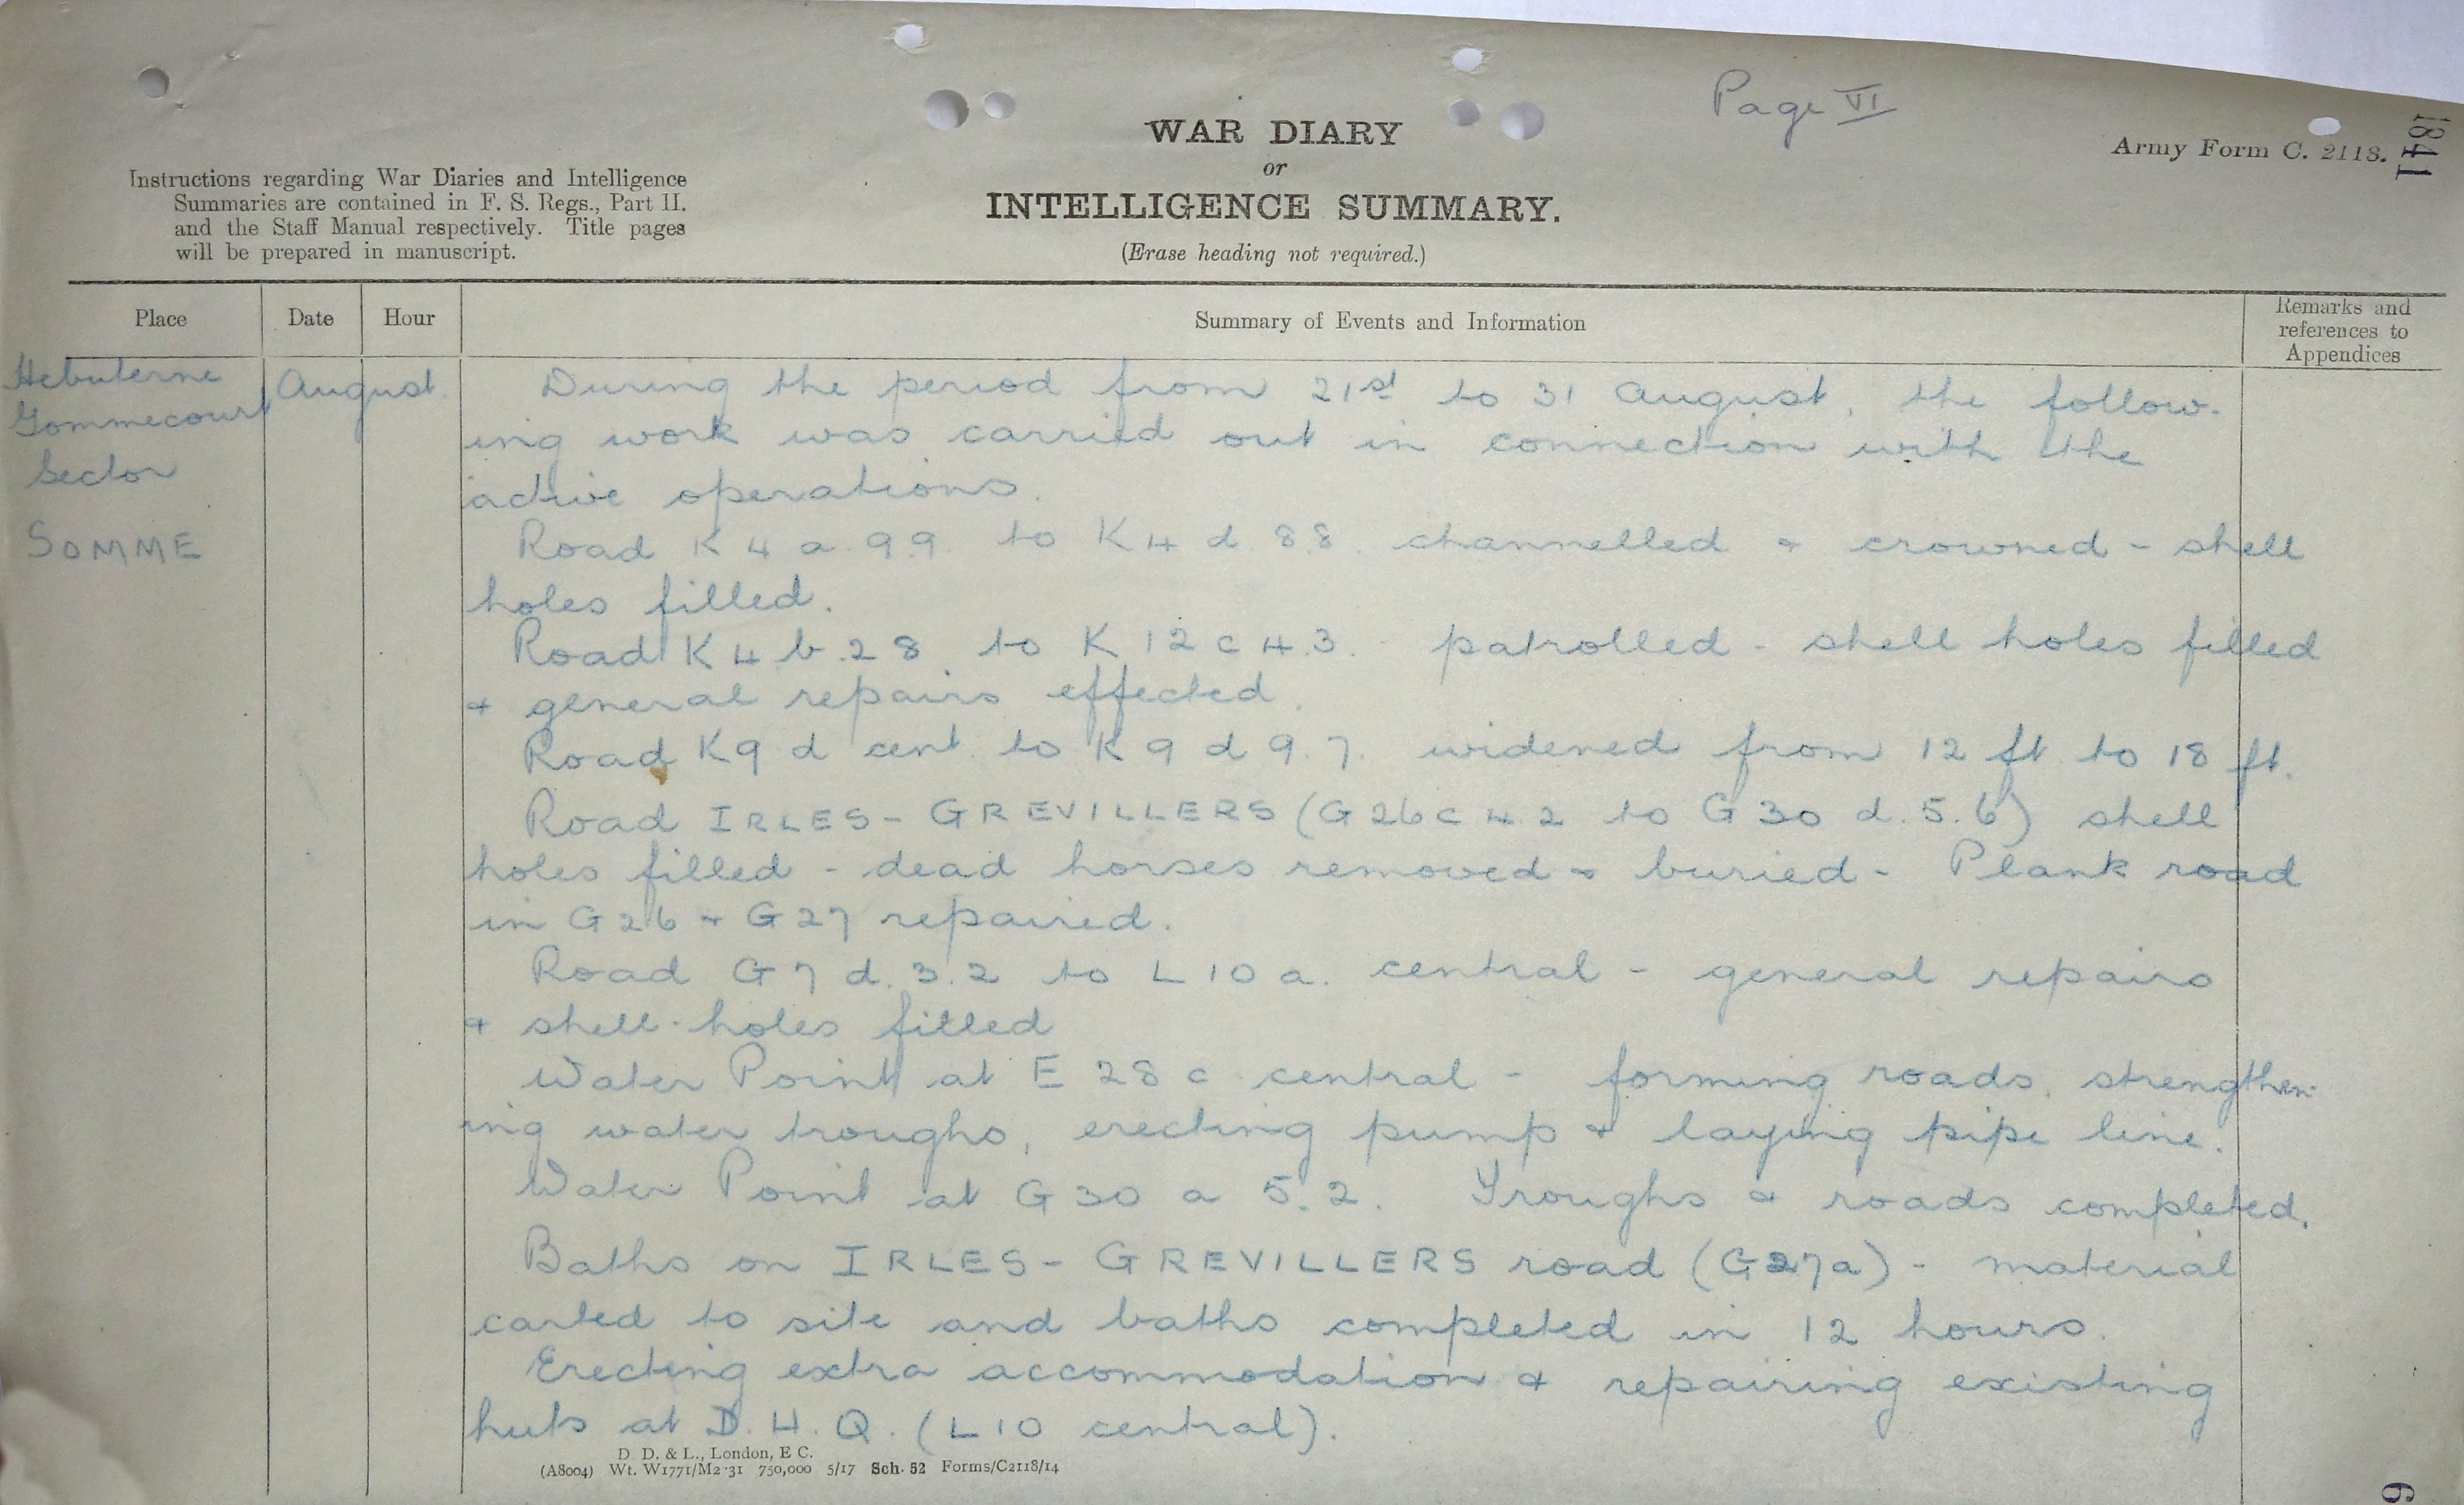 Page VI
WAR DIARY
or
INTELLIGENCE SUMMARY.
(Erase heading not required.)
Army Form C. 2118.
1841
Instructions regarding War Diaries and Intelligence
Summaries are contained in F. S. Regs., Part II.
and the Staff Manual respectively. Title pages
will be prepared in manuscript.
Place
Date
Hour
Summary of Events and Information
Remarks and
references to
Appendices
Hebuterne
Gommecourt
Sector
SOMME
August
During the period from 21st to 31 August, the follow-
ing work was carried out in connection with the
active operations.
Road K 4 a 9.9. to K 4 d 8.8. channelled & crowned - shell
holes filled.
Road K 4 b.2 8. to K 12 c 4.3. - patrolled - shell holes filled
& general repairs effected.
Road K9 d cent. to K 9 d 9.7. widened from 12 ft. to 18 ft.
Road IRLES - GREVILLERS (G 26 c 4.2 to G 30 d. 5.6) shell
holes filled - dead horses removed & buried - Plank road
in G 26 & G 27 repaired.
Road G 7 d. 3.2 to L 10 a. central - general repairs
& shell-holes filled
Water Point at E 28 c central - forming roads, strengthen-
ing water troughs, erecting pump & laying pipe line.
Water Point at G 30 a 5.2. Troughs & roads completed.
Baths on IRLES - GREVILLERS road (G27a) - material
carted to site and baths completed in 12 hours.
Erecting extra accommodation & repairing existing
huts at D. H. Q. (L 10 central).
D. D. & L., London, E C.
(A8004) Wt. W1771/M2 31 750,000 5/17 Sch. 52 Forms/C2118/14
6